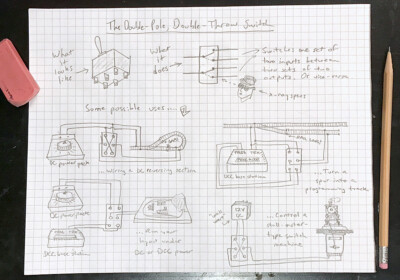 The Double-Pole, Double-Throw Switch
What it looks like
What it does
Switches one set of
two inputs between
two sets of two
outputs. Or vice-versa
x-ray specs
Some possible uses...
DC power pack
...wiring a DC reversing section
DCC base station
...Turn a spur into a programming track
DC power pack
DCC base station
...Run your layout under DC or DCC power
...Control a stall-motor-type switch machine